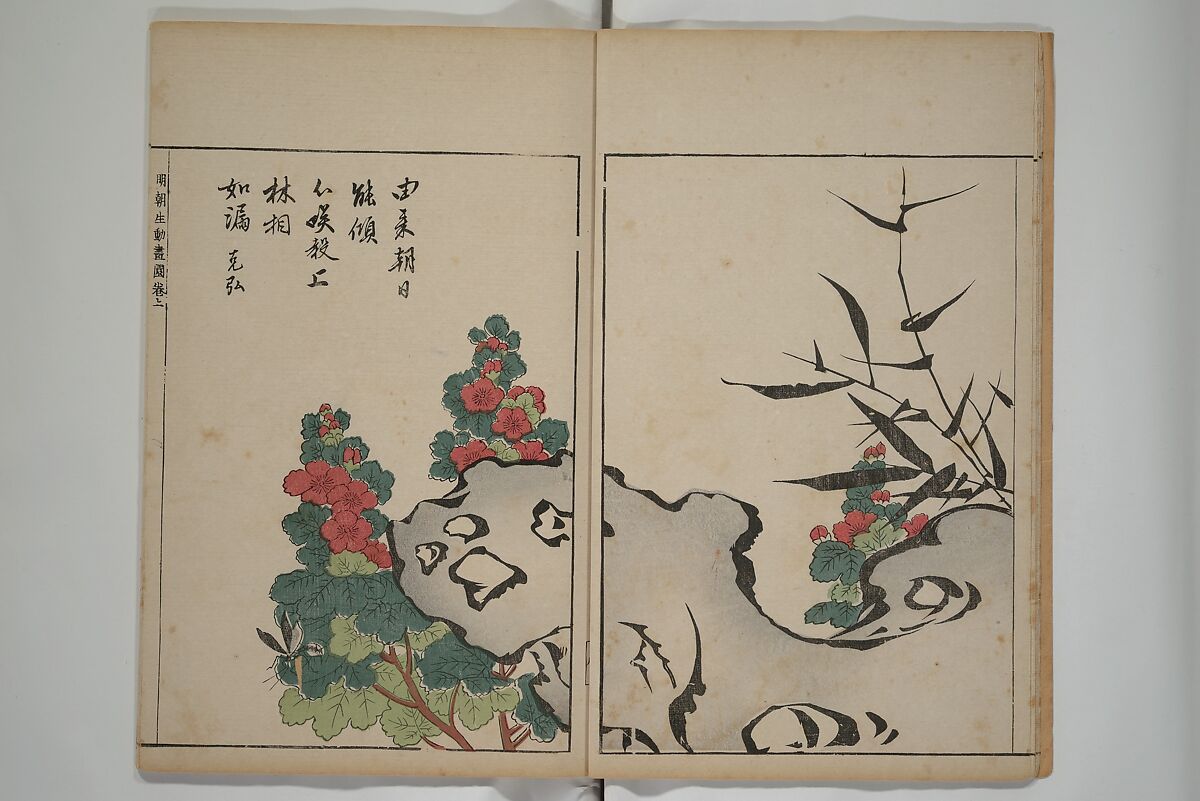 由来朝日
能傾
心娯殺上
林相
如漏 克弘
明朝生動畫園卷上